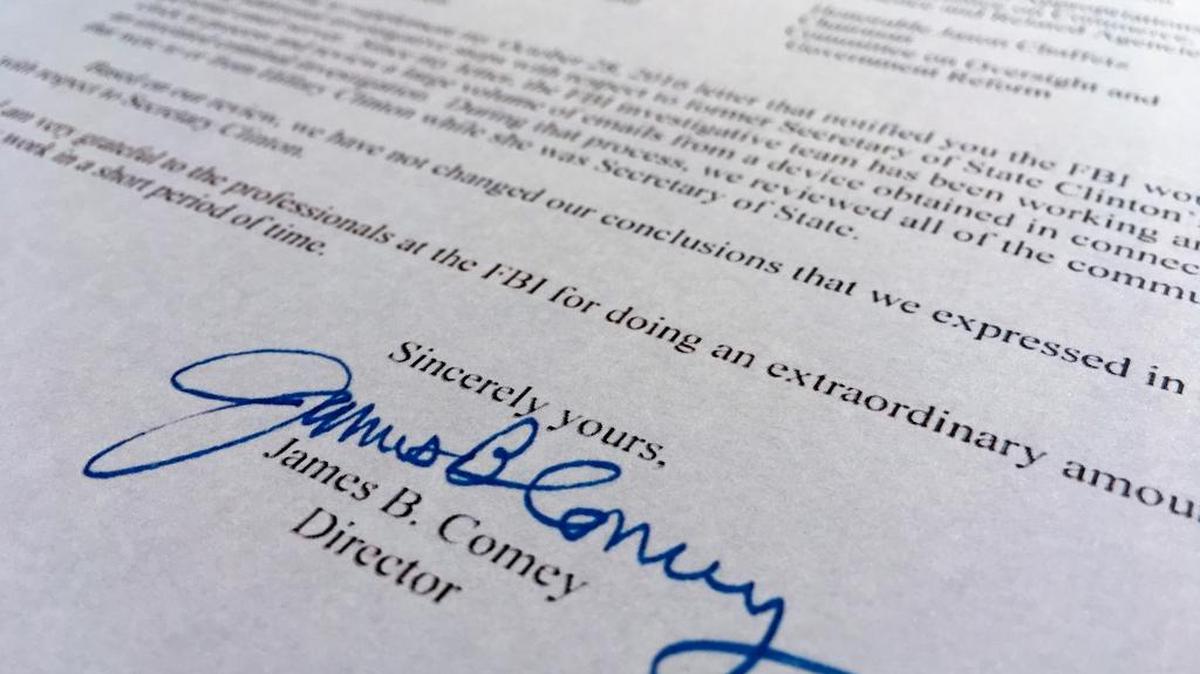 and Related Agencies
Honorable Jason Chaffetz
Chairman
Committee on Oversight and
Government Reform
October 28, 2016 letter that notified you the FBI wou
steps with respect to former Secretary of State Clinton'
Since my letter, the FBI investigative team has been working ar
and review a large volume of emails from a device obtained in connec
criminal investigation. During that process, we reviewed all of the commu
that were to or from Hillary Clinton while she was Secretary of State.
Based on our review, we have not changed our conclusions that we expressed in
with respect to Secretary Clinton.
I am very grateful to the professionals at the FBI for doing an extraordinary amou
work in a short period of time.
Sincerely yours,
James B Comey
James B. Comey
Director